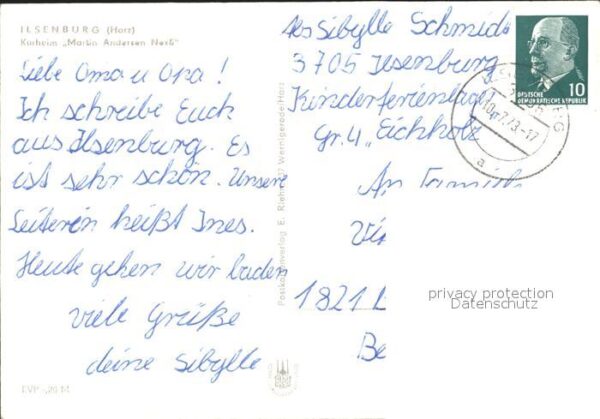 ILSENBURG (Harz)
Kurheim „Martin Andersen Nexö"
Liebe Oma u Opa!
Ich schreibe Euch
aus Ilsenburg. Es
ist sehr schön. Unsere
Leiterin heißt Ines.
Heute gehen wir baden
viele Grüße
deine Sibylle
EVP -,20 M
Abs Sibylle Schmidt
3705 Ilsenburg
Kinderferienlager
Gr. 4 „Eichholz
An Familie
1821
DEUTSCHE
DEMOKRATISCHE REPUBLIK
10
a
privacy protection
Datenschutz